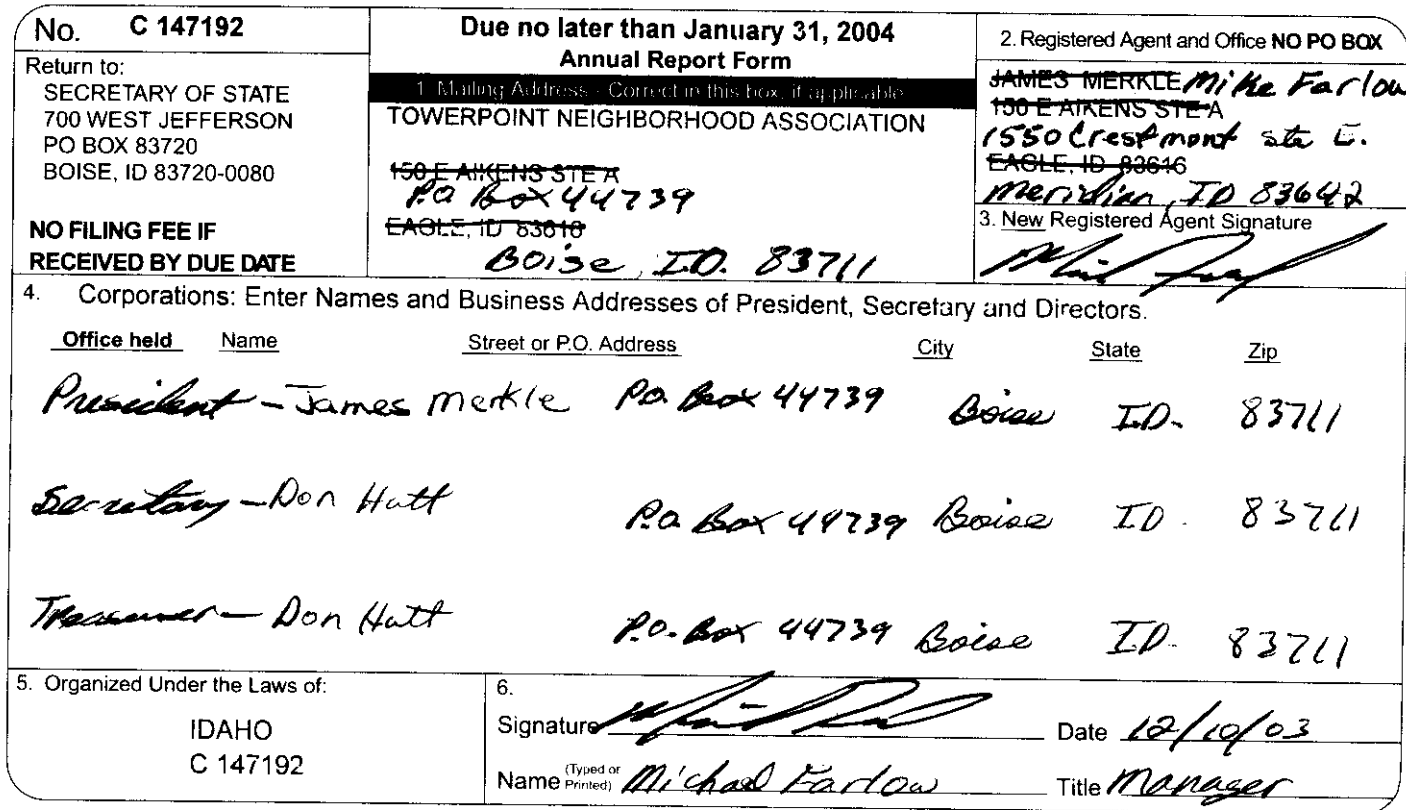 No. C 147192
Return to:
SECRETARY OF STATE
700 WEST JEFFERSON
PO BOX 83720
BOISE, ID 83720-0080
NO FILING FEE IF
RECEIVED BY DUE DATE
Due no later than January 31, 2004
Annual Report Form
1. Mailing Address - Correct in this box, if applicable
TOWERPOINT NEIGHBORHOOD ASSOCIATION
150 E AIKENS STE A
P.O Box 44739
EAGLE, ID 83616
Boise, ID. 83711
2. Registered Agent and Office NO PO BOX
JAMES MERKLE Mike Farlow
150 E AIKENS STE A
1550 Crestmont ste E.
EAGLE, ID 83616
Meridian, ID 83642
3. New Registered Agent Signature
4. Corporations: Enter Names and Business Addresses of President, Secretary and Directors.
Office held Name Street or P.O. Address City State Zip
President - James Merkle P.O. Box 44739 Boise ID. 83711
Secretary - Don Hutt P.O. Box 44739 Boise ID. 83711
Treasurer - Don Hutt P.O. Box 44739 Boise ID. 83711
5. Organized Under the Laws of:
IDAHO
C 147192
6.
Signature Date 12/10/03
Name (Typed or Printed) Michael Farlow Title Manager